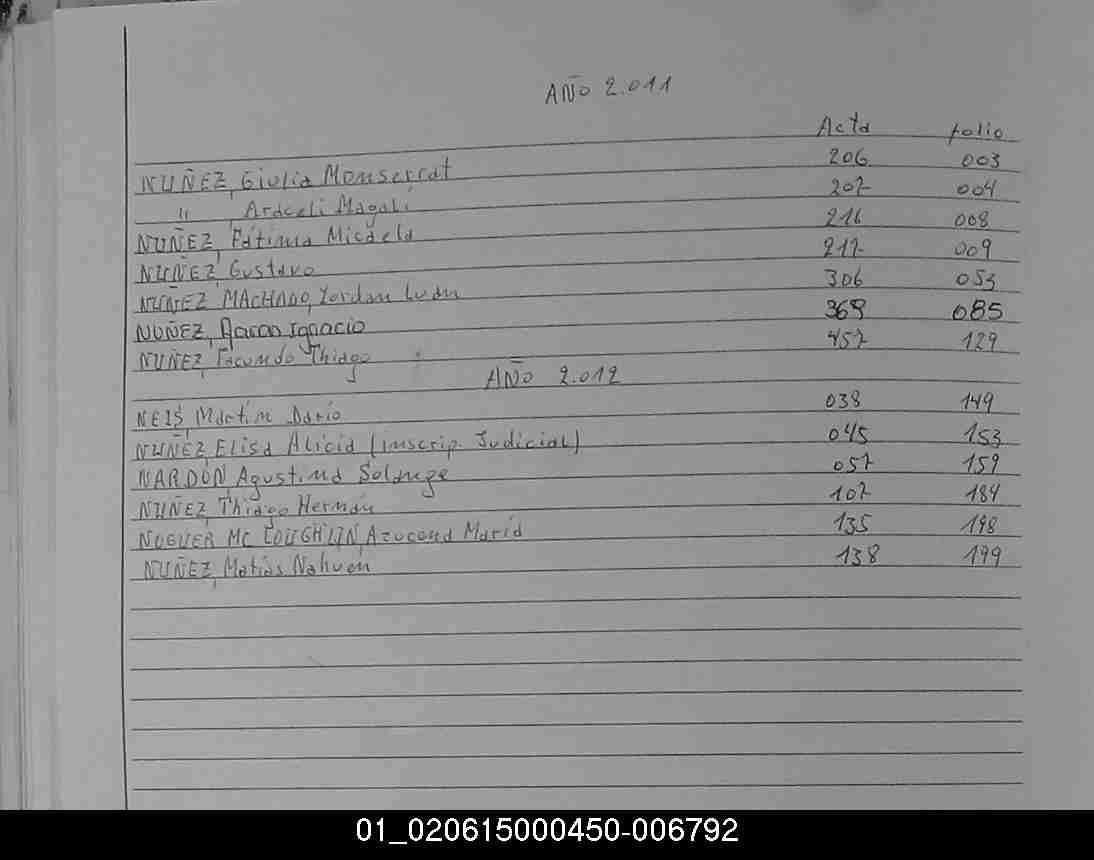 AÑO 2.011
Acta folio
NUÑEZ, Giulia Monserrat 206 003
" , Araceli Magali 207 004
NUÑEZ, Fátima Micaela 216 008
NUÑEZ, Gustavo 217 009
NUÑEZ MACHADO, Yordan Iván 306 053
NUÑEZ, Aaron Ignacio 369 085
NUÑEZ, Facundo Thiago 457 129
AÑO 2.012
NEIS, Martín Darío 038 149
NUÑEZ, Elisa Alicia (inscrip. Judicial) 045 153
NARDÓN, Agustina Solange 057 159
NUÑEZ, Thiago Hernán 107 184
NOGUER MC COUGHLIN, Azucena María 135 198
NUÑEZ, Matías Nahuén 138 199
01_020615000450-006792